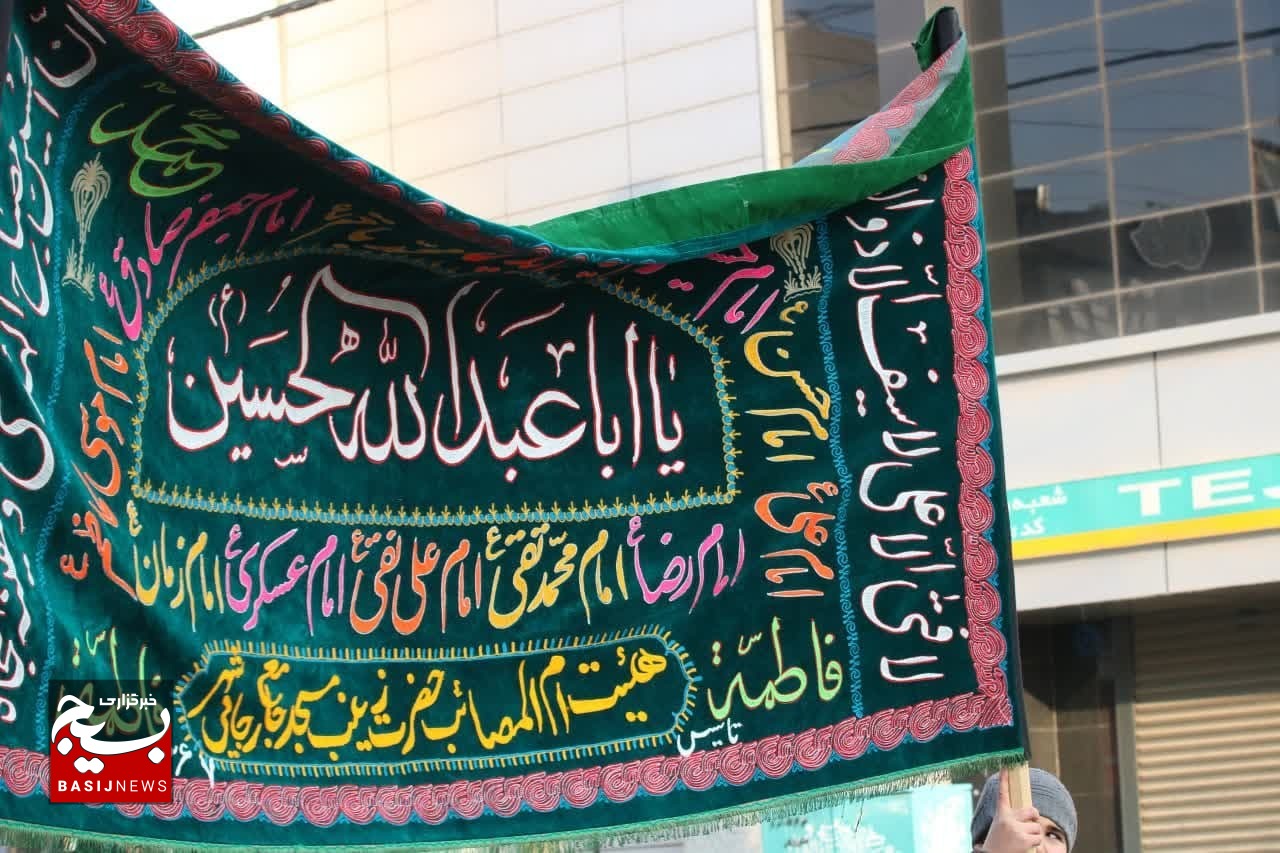 محمد
امام جعفر صادق ع
امام حسن
امام علی ع
یا اباعبدالله الحسین
(ع)
امام رضا ع
امام محمد تقی ع
امام علی نقی ع
امام عسکری ع
امام زمان
فاطمة
فاطمة
هیئت ام المصائب حضرت زینب مسجد جامع رجائی شهر
تاسیس
لا فتی الا علی لا سیف الا ذوالفقار
خبرگزاری
بسیج
BASIJNEWS
شعبه
TEJ